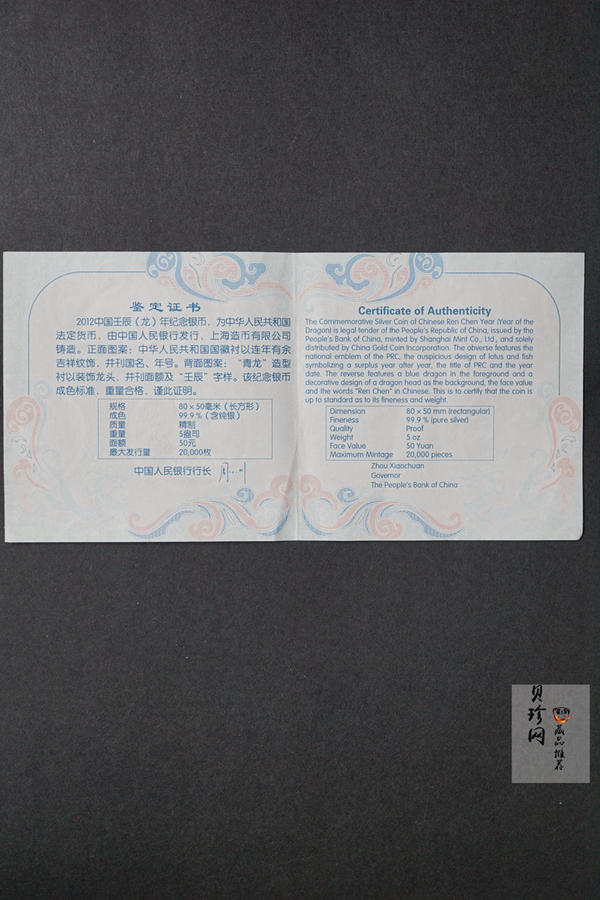 鉴定证书
2012中国壬辰（龙）年纪念银币，为中华人民共和国
法定货币，由中国人民银行发行，上海造币有限公司
铸造。正面图案：中华人民共和国国徽衬以连年有余
吉祥纹饰，并刊国名、年号。背面图案：“青龙”造型
衬以装饰龙头，并刊面额及“壬辰”字样。该纪念银币
成色标准，重量合格，谨此证明。
规格 80×50毫米（长方形）
成色 99.9%（含纯银）
质量 精制
重量 5盎司
面额 50元
最大发行量 20,000枚
中国人民银行行长
Certificate of Authenticity
The Commemorative Silver Coin of Chinese Ren Chen Year (Year of the
Dragon) is legal tender of the People's Republic of China, issued by the
People's Bank of China, minted by Shanghai Mint Co., Ltd., and solely
distributed by China Gold Coin Incorporation. The obverse features the
national emblem of the PRC, the auspicious design of lotus and fish
symbolizing a surplus year after year, the title of PRC and the year
date. The reverse features a blue dragon in the foreground and a
decorative design of a dragon head as the background, the face value
and the words "Ren Chen" in Chinese. This is to certify that the coin is
up to standard as to its fineness and weight.
Dimension 80 x 50 mm (rectangular)
Fineness 99.9 % (pure silver)
Quality Proof
Weight 5 oz
Face Value 50 Yuan
Maximum Mintage 20,000 pieces
Zhou Xiaochuan
Governor
The People's Bank of China
贝珍网
藏品推荐